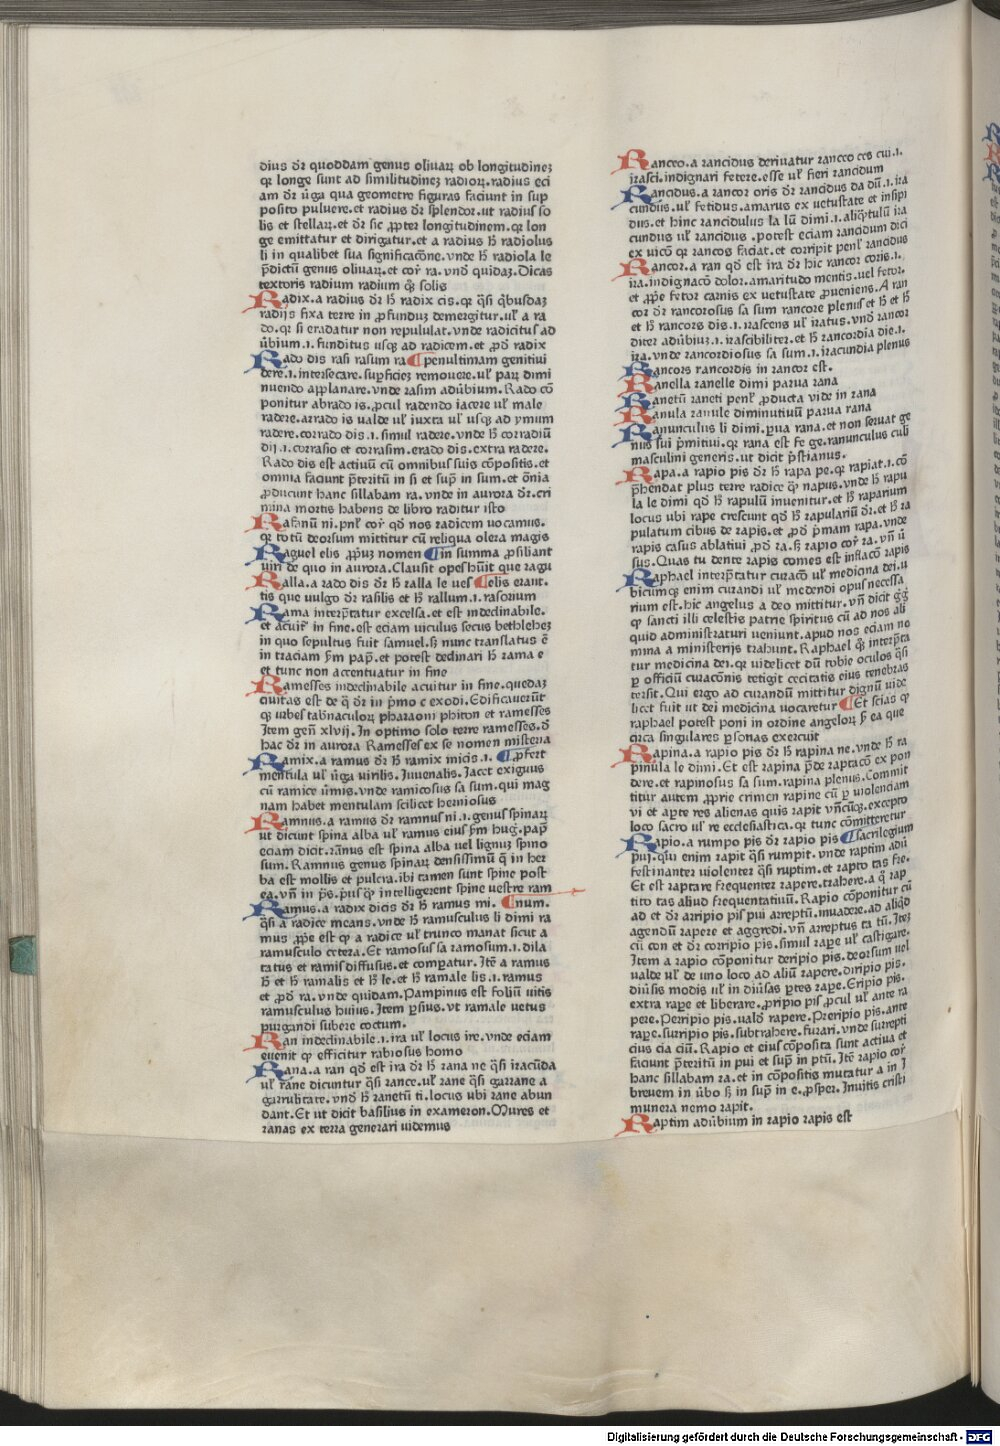 dius dr̄ quoddam genus oliuaꝝ ob longitudineꝫ
qꝛ longe sunt ad similitudineꝫ radioꝝ.radius eci
am dr̄ ūga qua geometre figuras faciunt in sup
posito puluere.et radius dr̄ splendor.ut radius so
lis et stellaꝝ.et dr̄ sic ꝓpter longitudinem.qꝛ lon
ge emittatur et dirigatur.et a radius h̄ radiolus
li in qualibet sua significacōne.vnde h̄ radiola le
p̄dictū genus oliuaꝝ.et cor̄ ra.vnd̄ quidaꝫ.Dicas
textoris radium radium qꝫ solis
Radix.a radius dr̄ h̄ radix cis.qꝛ q̄si q̄busdaꝫ
radijs fixa terre in ꝓfunduꝫ demergitur.ul̄ a ra
do.qꝛ si eradatur non repululat.vnde radicitus ad
ūbium.i.funditus usqꝫ ad radicem.et ꝓd̄ radix
Rado dis rasi rasum ra ¶penultimam genitiui
dere.i.intersecare.suꝑficieꝫ remouere.ul̄ parꝫ dimi
nuendo applanare.vnde rasim adūbium.Rado cō
ponitur abrado is.ꝓcul radendo iacere ul̄ male
radere.arrado is ualde ul̄ iuxta ul̄ usqꝫ ad ymum
radere.corrado dis.i.simul radere.vnde h̄ corradiū
dij.i.corrasio et corrasim.erado dis.extra radere.
Rado dis est actiuū cū omnibus suis cōpositis.et
omnia faciunt p̄teritū in si et sup̄ in sum.et ōnia
ꝓducunt hanc sillabam ra.vnde in aurora dr̄.cri
mina mortis habens de libro raditur isto
Rafanū ni.pnl̄ cor̄ qd̄ nos radicem uocamus.
qꝛ totū deorsum mittitur cū reliqua olera magis
Raguel elis ꝓpꝛiuꝫ nomen ¶in summa ꝓsiliant
uiri de quo in aurora.Clausit opes hūit que ragu
Ralla.a rado dis dr̄ h̄ ralla le uel ¶elis erant.
tis que uulgo dr̄ rasilis et h̄ rallum.i.rasorium
Rama interp̄tatur excelsa.et est indeclinabile.
et acuit̄ in fine.est eciam uiculus secus bethleheꝫ
in quo sepultus fuit samuel.s̄ nunc translatus ē
in traciam s̄m pap̄.et potest declinari h̄ rama e
et tunc non accentuatur in fine
Ramesses indeclinabile acuitur in fine.quedaꝫ
ciuitas est de q̄ dr̄ in p̄mo c exodi.Edificauerūt
qꝫ urbes tab̄naculoꝝ pharaoni phiton et ramesses
Item gen̄ xlvij.In optimo solo terre ramesses.d̄
hac dr̄ in aurora Ramesses ex se nomen misteria
Ramix.a ramus dr̄ h̄ ramix micis.i. ¶ꝓfert
mentula ul̄ ūga virilis.Juuenalis.Jacet exiguus
cū ramice ūmis.vnde ramicosus sa sum.qui mag
nam habet mentulam scilicet herniosus
Ramnus.a ramus dr̄ ramnus ni.i.genus spinaꝝ
ut dicunt spina alba ul̄ ramus eius s̄m huḡ.pap̄
eciam dicit.rānus est spina alba uel lignuꝫ spino
sum.Ramnus genus spinaꝝ densissimū q̄ in her
ba est mollis et pulcra.ibi tamen sunt spine post
ea.vn̄ in ps̄.pꝛius qꝫ intelligerent spine uestre ram
Ramus.a radix dicis dr̄ h̄ ramus mi. ¶num.
q̄si a radice means.vnde h̄ ramusculus li dimi ra
mus ꝓpe est qꝫ a radice ul̄ trunco manat sicut a
ramusculo cetera.Et ramosus sa ramosum.i.dila
tatus et ramis diffusus.et compatur.Itē a ramus
h̄ et h̄ ramalis et h̄ le.et h̄ ramale lis.i.ramus
et ꝓd̄ ra.vnde quidam.Pampinus est foliū uitis
ramusculus huius.Item ꝑsius.vt ramale uetus
purgandi subere coctum.
Ran indeclinabile.i.ira ul̄ locus ire.vnde eciam
euenit qꝫ efficitur rabiosus homo
Rana.a ran qd̄ est ira dr̄ h̄ rana ne q̄si iracūda
ul̄ rane dicuntur q̄si rance.ul̄ rane q̄si garrane a
garrulitate.vnd̄ h̄ ranetū ti.locus ubi rane abun
dant.Et ut dicit basilius in exameron.Mures et
ranas ex terra generari uidemus
Ranceo.a rancidus deriuatur ranceo ces cui.i.
irasci.indignari fetere.esse ul̄ fieri rancidum
Rancidus.a rancor oris dr̄ rancidus da dū.i.ira
cundus.ul̄ fetidus.amarus ex uetustate et insipi
dus.et hinc rancidulus la lū dimi.i.aliq̄ntulū ira
cundus ul̄ rancidus .potest eciam rancidum dici
ex uicō qꝛ rancos faciat.et corripit penl̄ rancidus
Rancor.a ran qd̄ est ira dr̄ hic rancor coris.i.
ira.indignacō dolor.amaritudo mentis.uel fetor.
et ꝓpe fetor carnis ex uetustate ꝓueniens.A ran
cor dr̄ rancorosus sa sum rancore plenus et h̄ et h̄
et h̄ rancors dis.i.irascens ul̄ iratus.vnd̄ rancor
diter adūbiuꝫ.i.irascibiliter.et h̄ rancordia die.i.
ira.vnde rancordiosus sa sum.i.iracundia plenus
Rancors rancordis in rancor est.
Ranella ranelle dimi parua rana
Ranetū raneti penl̄ ꝓducta vide in rana
Ranula ranule diminutiuū parua rana
Ranunculus li dimi.ꝑua rana.et non seruat ge
nus sui p̄mitiui.qꝛ rana est fe ge.ranunculus culi
masculini generis.ut dicit p̄stianus.
Rapa.a rapio pis dr̄ h̄ rapa pe.qꝛ rapiat.i.cō
p̄hendat plus terre radice qꝫ napus.vnde h̄ rapu
la le dimi qd̄ h̄ rapulū inuenitur.et h̄ raparium
locus ubi rape crescunt qd̄ h̄ rapulariū dr̄.et h̄ ra
pulatum cibus de rapis.et ꝓd̄ p̄mam rapa.vnde
rapis casus ablatiui ꝓd̄ ra.s̄ rapio cor̄ ra.vn̄ ū
sus.Quas tu dente rapis comes est inflacō rapis
Raphael interp̄tatur curacō ul̄ medicina dei.u
bicumqꝫ enim curandi ul̄ medendi opus necessa
rium est.hic angelus a deo mittitur.vn̄ dicit gḡ
qꝫ sancti illi celestis patrie spiritus cū ad nos ali
quid administraturi ueniunt.apud nos eciam no
mina a ministerijs trahunt.Raphael qꝫ interp̄ta
tur medicina dei.qꝛ videlicet dū tobie oculos q̄si
ꝑ officiū curacōnis tetigit cecitatis eius tenebras
tersit.Qui ergo ad curandū mittitur dignū uide
licet fuit ut dei medicina uocaretur ¶Et scias qꝫ
raphael potest poni in ordine angeloꝝ s̄ ea que
circa singulares ꝑsonas exercuit
Rapina.a rapio pis dr̄ h̄ rapina ne.vnde h̄ ra
pinula le dimi.Et est rapina p̄de raptacō ex pon
dere.et rapinosus sa sum.rapina plenus.Commit
titur autem ꝓprie crimen rapine cū ꝑ uiolenciam
vi et aperte res alienas quis rapit vn̄cūqꝫ.excepto
loco sacro ul̄ re ecclesiastica.qꝛ tunc cōmitteretur
Rapio.a rumpo pis dr̄ rapio pis ¶sacrilegium
pui.qui enim rapit q̄si rumpit.vnde raptim adū
festinanter uiolenter q̄si ruptim.et rapto tas fre.
Et est raptare frequenter rapere.trahere.a q̄ rap
tito tas aliud frequentatiuū.Rapio cōponitur cū
ad et dr̄ arripio pis pui arreptū.inuadere.ad aliqd̄
agendū rapere et aggredi.vn̄ arreptus ta tū.Iteꝫ
cū con et dr̄ corripio pis.simul rapere ul̄ castigare.
Item a rapio cōponitur deripio pis.deorsum uel
ualde ul̄ de uno loco ad aliū rapere.diripio pis.
diūsis modis ul̄ in diūsas ꝑtes rape.Eripio pis.
extra rape et liberare.ꝓripio pis ꝓcul ul̄ ante ra
pere.Perripio pis.uald̄ rapere.Preripio pis.ante
rape.surripio pis.subtrahere.furari.vnde surrepti
cius cia ciū.Rapio et eius cōposita sunt actiua et
faciunt p̄teritū in pui et sup̄ in ptū.Itē rapio cor̄
hanc sillabam ra.et in cōpositis mutatur a in I
breuem in ūbo s̄ in sup̄ in e.ꝓsper.Inuitis cristi
munera nemo rapit.
Raptim adūbium in rapio rapis est
Digitalisierung gefördert durch die Deutsche Forschungsgemeinschaft - DFG